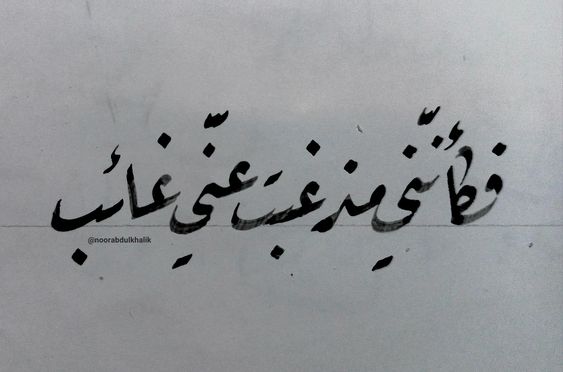 فكأنّني مذ غبتَ عنّي غائب
@noorabdulkhalik